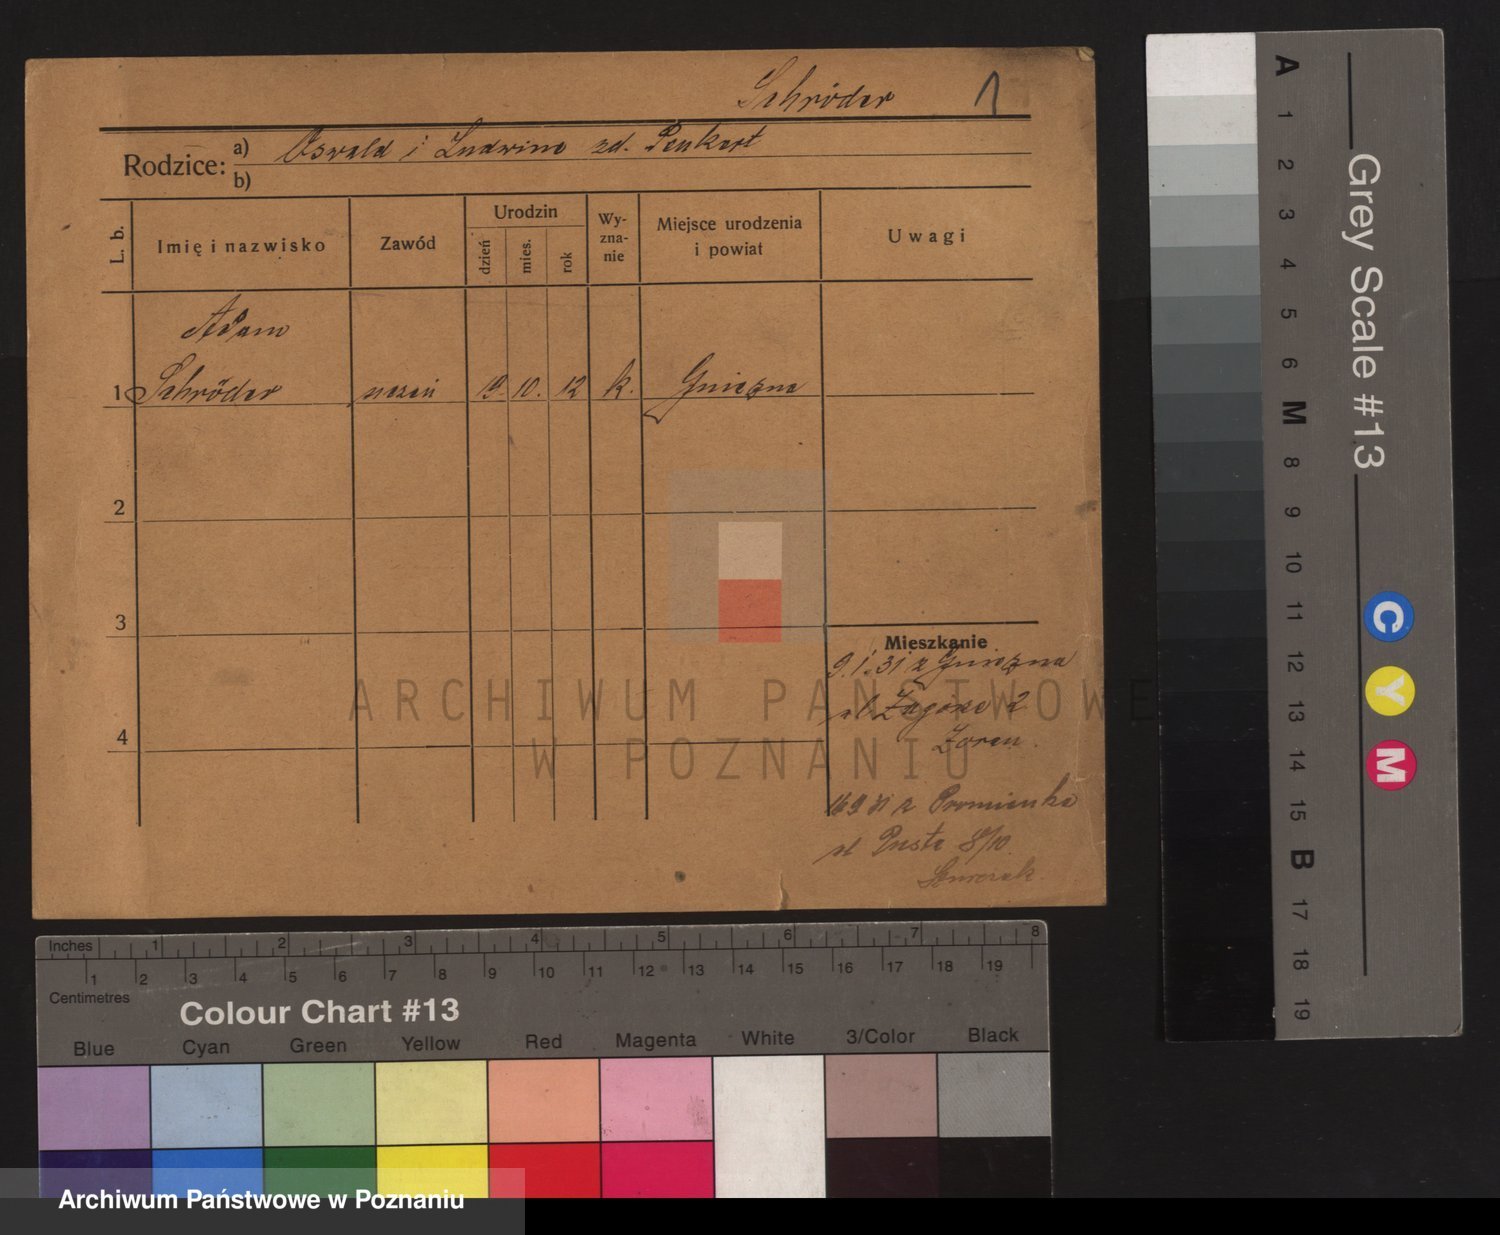 Schröder 1
Rodzice: a) Oswald i Ludwina zd. Penkert
b)
L. b. Imię i nazwisko Zawód Urodzin dzień mies. rok Wyzna-nie Miejsce urodzenia i powiat Uwagi
Adam
1 Schröder uczeń 19. 10. 12 k. Gniezno
2
3
4
Mieszkanie
9.1.31 z Gniezna
ul Zagórze 2
16 9 31 z Promienka
ul Pusta 8/10
ARCHIWUM PAŃSTWOWE
W POZNANIU
Inches 1 2 3 4 5 6 7 8
1 2 3 4 5 6 7 8 9 10 11 12 13 14 15 16 17 18 19
Centimetres
Colour Chart #13
Blue Cyan Green Yellow Red Magenta White 3/Color Black
Archiwum Państwowe w Poznaniu
Grey Scale #13
A 1 2 3 4 5 6 M 8 9 10 11 12 13 14 15 B 17 18 19
C Y M